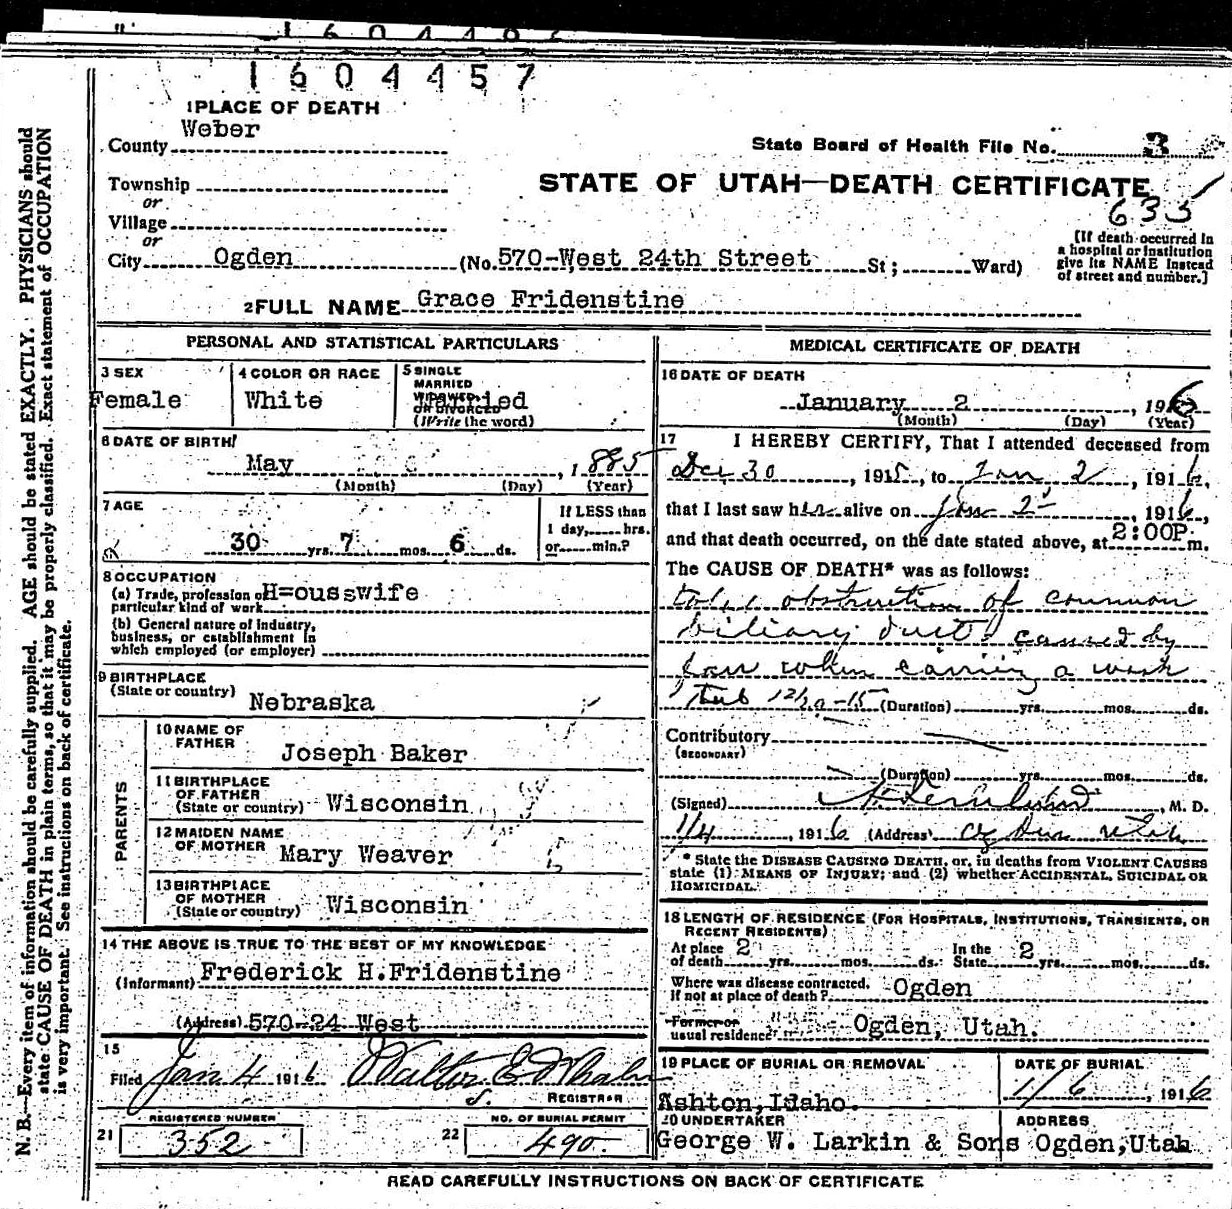 1604457
1 PLACE OF DEATH
County Weber
State Board of Health File No. 3
Township
or
Village
or
STATE OF UTAH—DEATH CERTIFICATE
635
City Ogden (No. 570-West 24th Street St; Ward)
[If death occurred in
a hospital or institution
give its NAME instead
of street and number.]
2 FULL NAME Grace Fridenstine
PERSONAL AND STATISTICAL PARTICULARS
3 SEX
Female
4 COLOR OR RACE
White
5 SINGLE
MARRIED
WIDOWED
OR DIVORCED
(Write the word)
Married
6 DATE OF BIRTH
May , 1885
(Month) (Day) (Year)
7 AGE
30 yrs. 7 mos. 6 ds.
If LESS than
1 day, hrs.
or min.?
8 OCCUPATION
(a) Trade, profession or H=ousswife
particular kind of work
(b) General nature of industry,
business, or establishment in
which employed (or employer)
9 BIRTHPLACE
(State or country) Nebraska
PARENTS
10 NAME OF
FATHER Joseph Baker
11 BIRTHPLACE
OF FATHER
(State or country) Wisconsin
12 MAIDEN NAME
OF MOTHER Mary Weaver
13 BIRTHPLACE
OF MOTHER
(State or country) Wisconsin
14 THE ABOVE IS TRUE TO THE BEST OF MY KNOWLEDGE
(Informant) Frederick H.Fridenstine
(Address) 570-24 West
15
Filed Jan 4 1916 Walter E Whalen
REGISTRAR
REGISTERED NUMBER
21 352
NO. OF BURIAL PERMIT
22 490
MEDICAL CERTIFICATE OF DEATH
16 DATE OF DEATH
January 2 , 1916
(Month) (Day) (Year)
17 I HEREBY CERTIFY, That I attended deceased from
Dec 30 , 1915, to Jan 2 , 1916,
that I last saw her alive on Jan 2 , 1916,
and that death occurred, on the date stated above, at 2:00P m.
The CAUSE OF DEATH* was as follows:
total obstruction of common
biliary duct caused by
when carrying a wash
Tub 12/30-15 (Duration) yrs. mos. ds.
Contributory
(SECONDARY)
(Duration) yrs. mos. ds.
(Signed) , M. D.
1/4 , 1916 (Address) Ogden Utah
* State the DISEASE CAUSING DEATH, or, in deaths from VIOLENT CAUSES
state (1) MEANS OF INJURY; and (2) whether ACCIDENTAL, SUICIDAL OR
HOMICIDAL.
18 LENGTH OF RESIDENCE (FOR HOSPITALS, INSTITUTIONS, TRANSIENTS, OR
RECENT RESIDENTS)
At place of death 2 yrs. mos. ds. In the State 2 yrs. mos. ds.
Where was disease contracted,
If not at place of death? Ogden
Former or
usual residence Ogden, Utah.
19 PLACE OF BURIAL OR REMOVAL
Ashton,Idaho.
DATE OF BURIAL
1/6 , 1916
20 UNDERTAKER
George W. Larkin & Sons
ADDRESS
Ogden,Utah
READ CAREFULLY INSTRUCTIONS ON BACK OF CERTIFICATE
N. B.—Every item of information should be carefully supplied. AGE should be stated EXACTLY. PHYSICIANS should
state CAUSE OF DEATH in plain terms, so that it may be properly classified. Exact statement of OCCUPATION
is very important. See instructions on back of certificate.